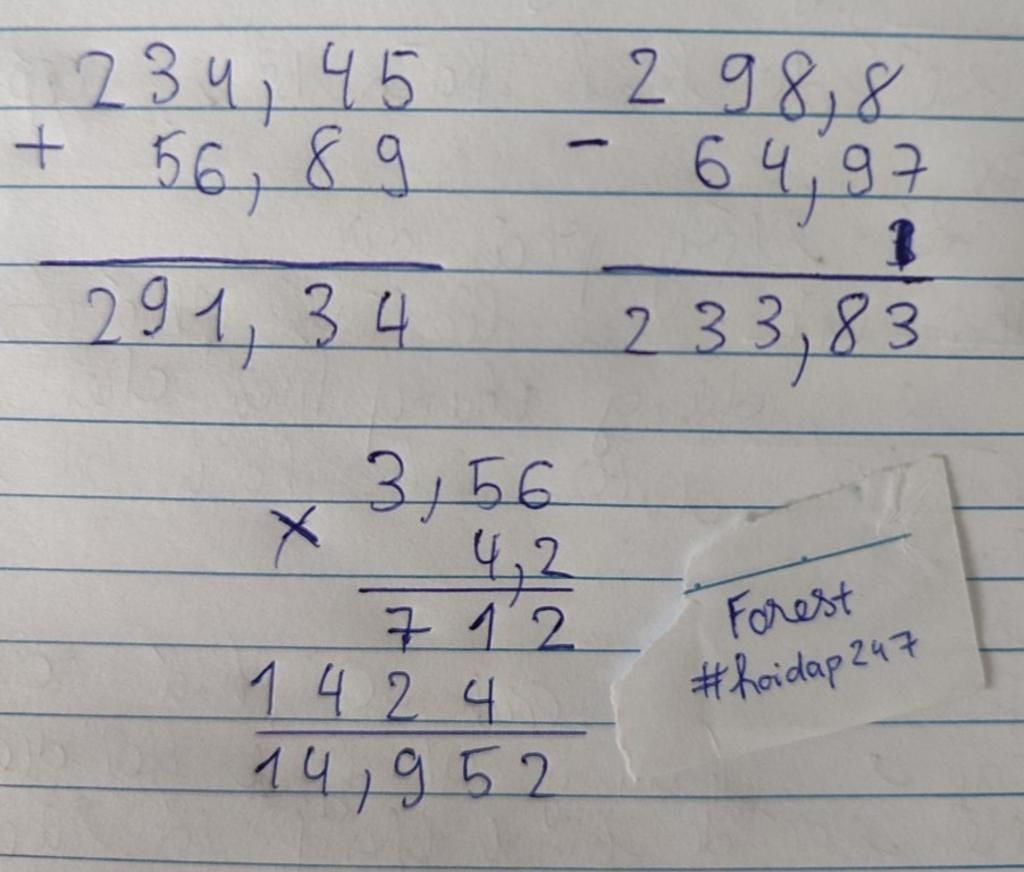 234,45
+ 56,89
291,34
298,8
- 64,97
1
233,83
3,56
x 4,2
712
1424
14,952
Forest
#hoidap247